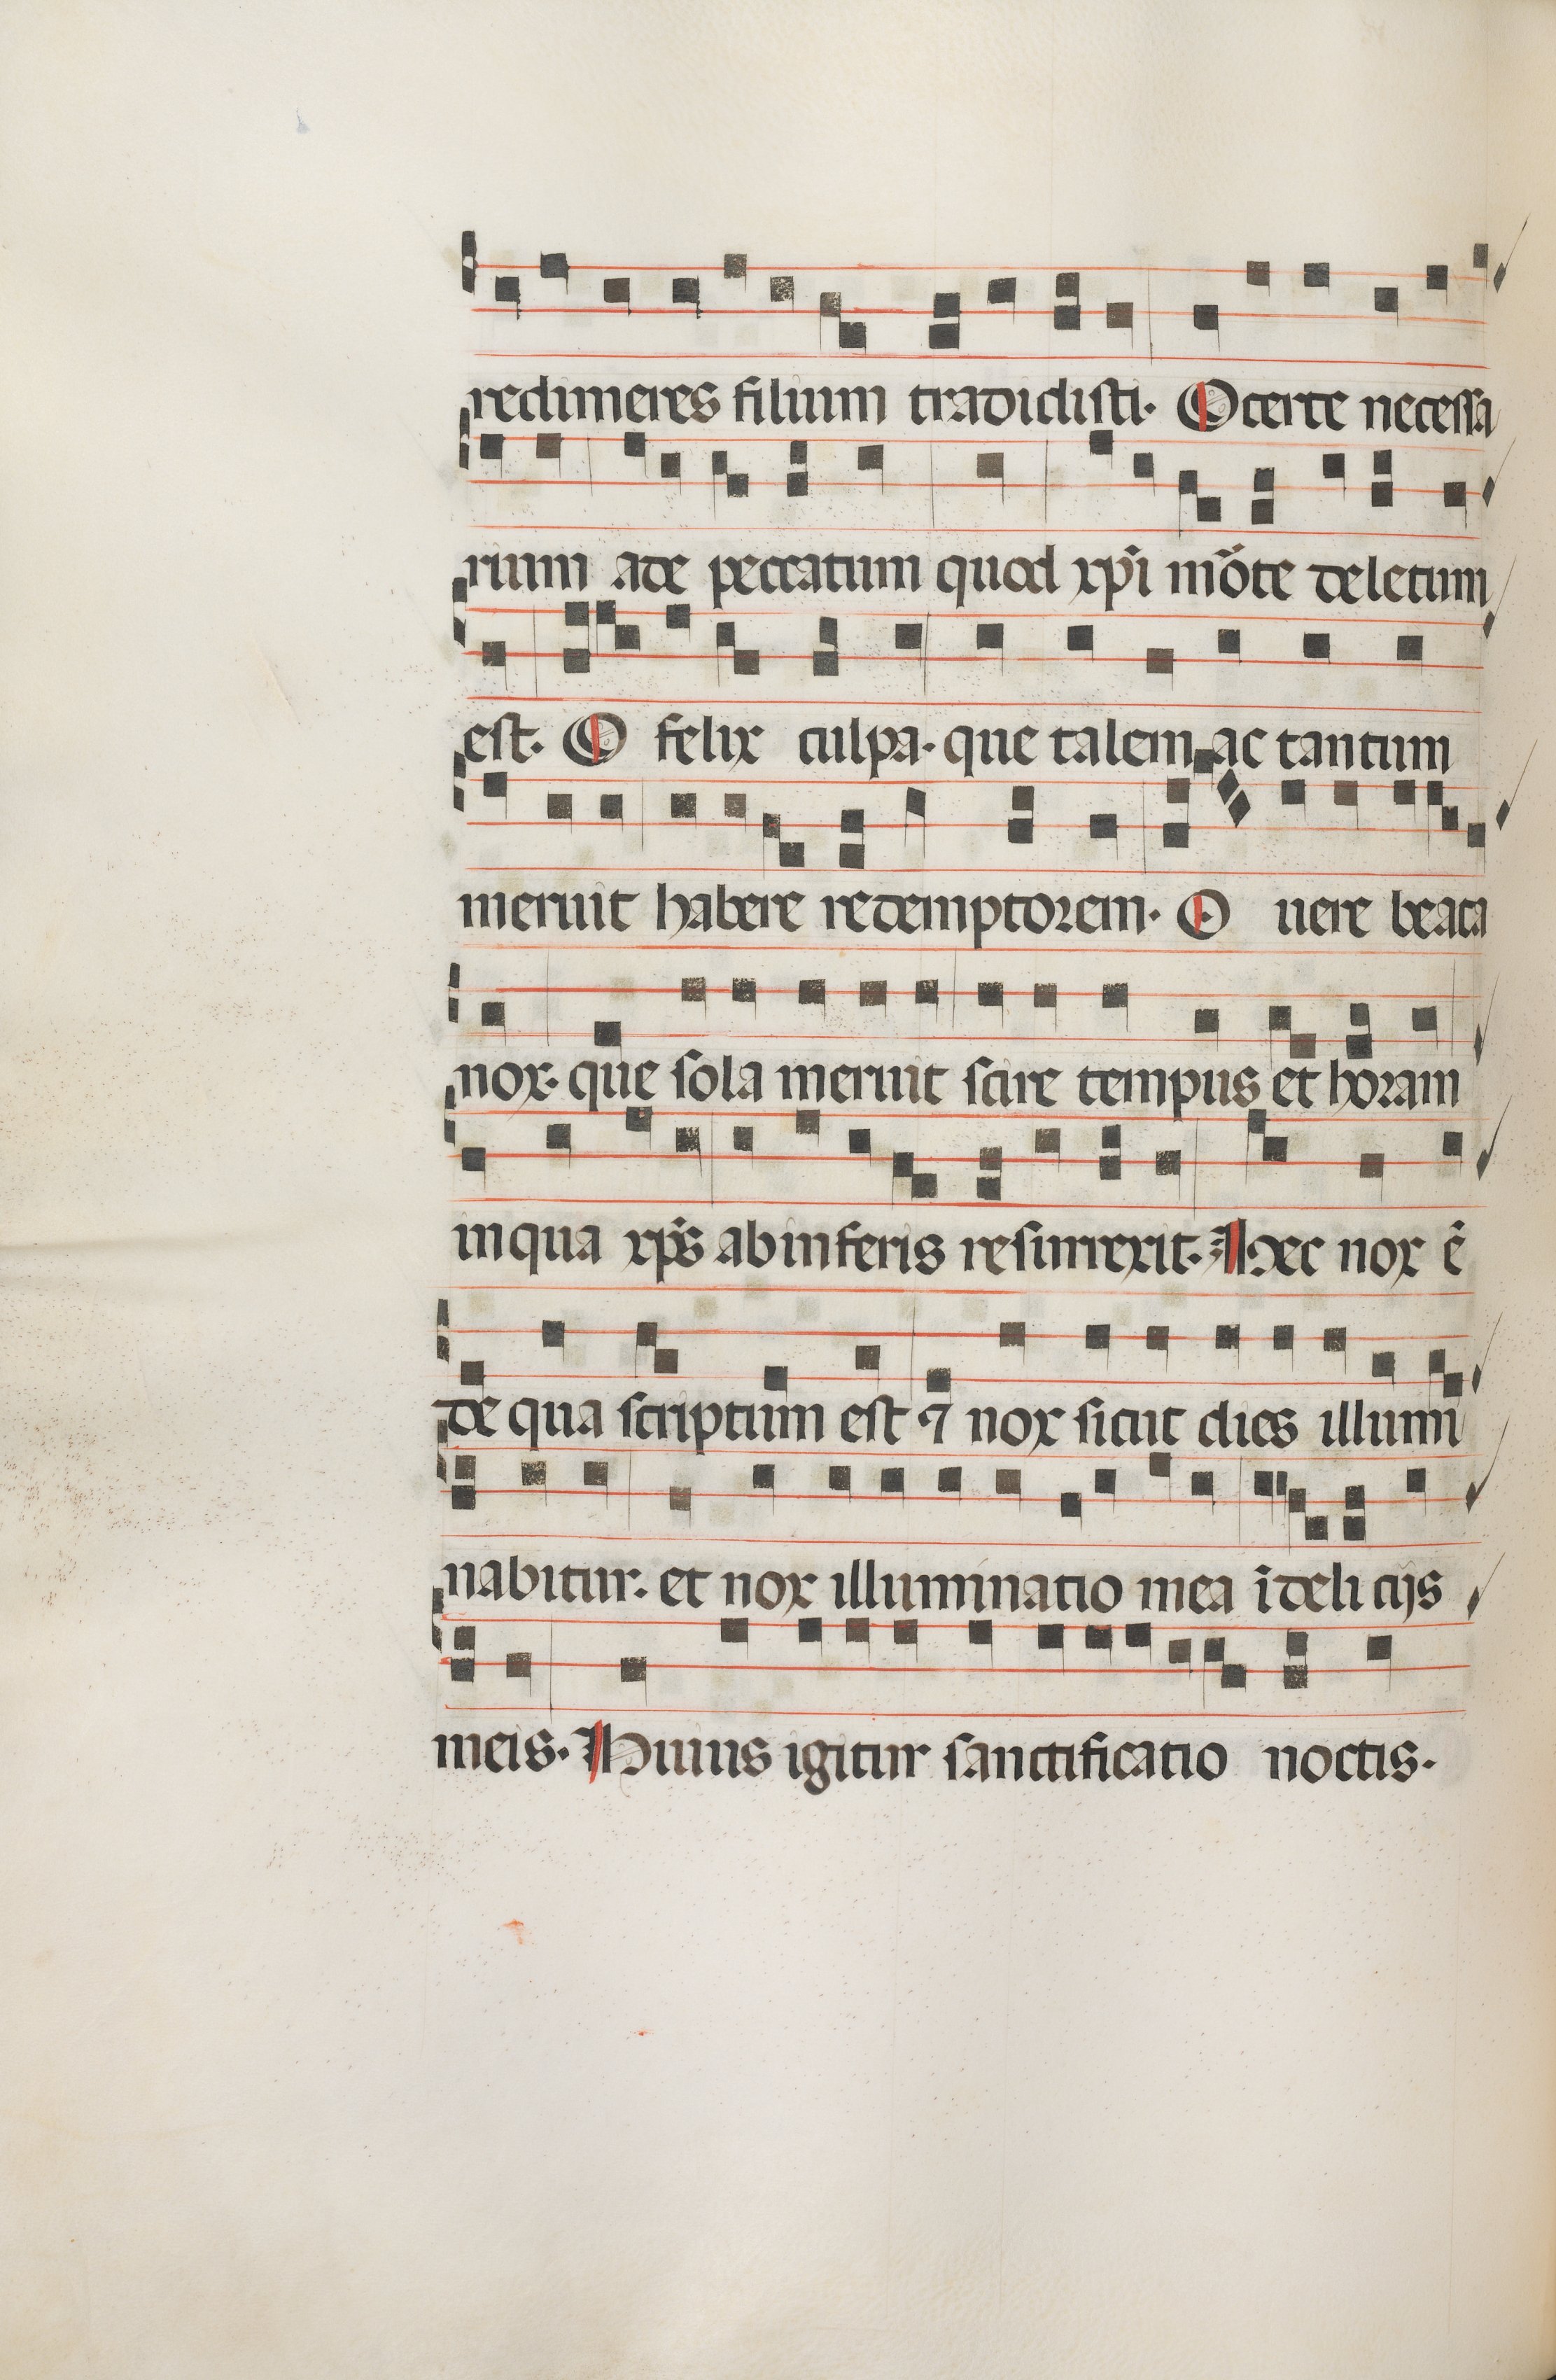 redimeres filium tradidisti. O certe necessa
rium ade peccatum quod xp̄i mōte deletum
est. O felix culpa. que talem ac tantum
meruit habere redemptorem. O uere beata
nox. que sola meruit scire tempus et horam
inqua xp̄s ab inferis resurrexit. Hec nox ē
de qua scriptum est ⁊ nox sicut dies illumi
nabitur. et nox illuminatio mea ī delicijs
meis. Huius igitur sanctificatio noctis.